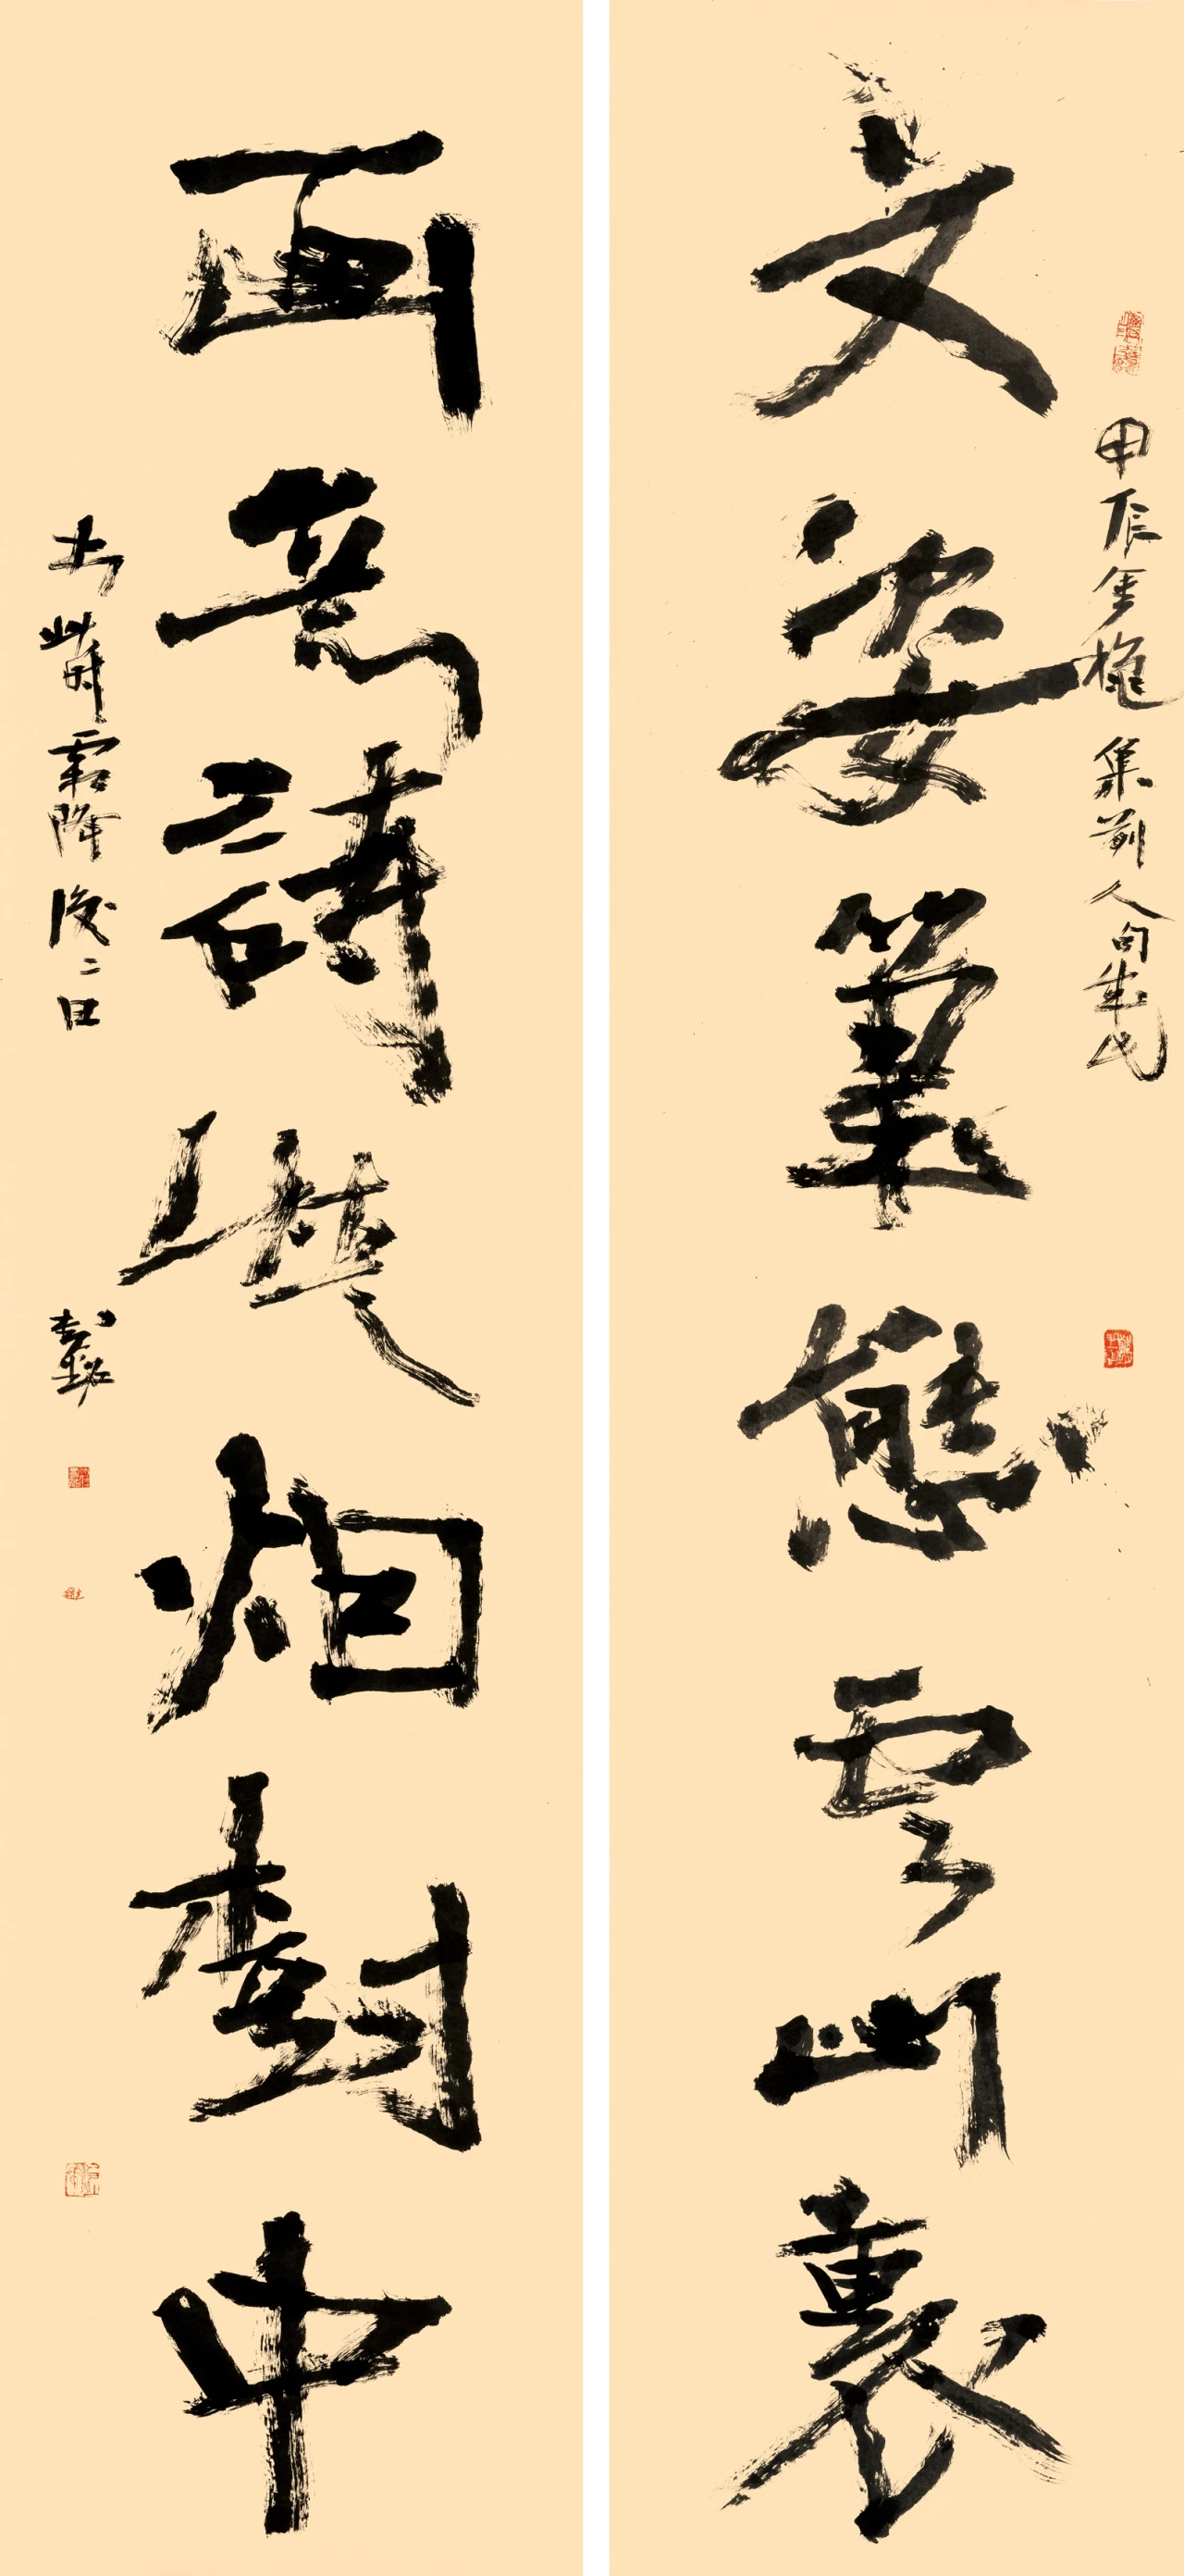 文姿筆態雲山裏
畫意詩情烟樹中
甲辰年秋集前人句成此
書時霜降後二日